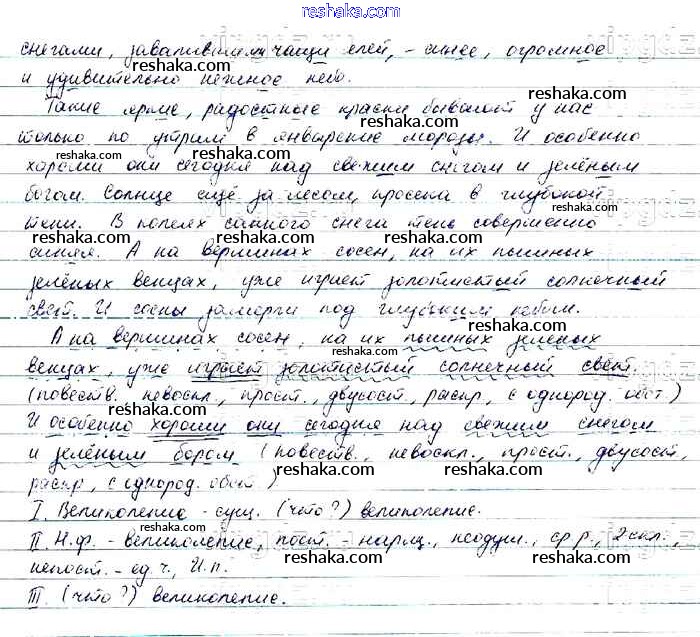 reshaka.com
снегами, завалившими чащи елей, - синее, огромное
и удивительно нежное небо.
Такие яркие, радостные краски бывают у нас
только по утрам в январские морозы. И особенно
хороши они сегодня над свежим снегом и зелёным
бором. Солнце ещё за лесом, просека в глубокой
тени. В колеях санного снега тень совершенно
синяя. А на вершинах сосен, на их пышных
зелёных венцах, уже играет золотистый солнечный
свет. И сосны замерли под глубоким небом.
А на вершинах сосен, на их пышных зелёных
венцах, уже играет золотистый солнечный свет.
(повеств. невоскл., прост., двусост., распр., с однород. обст.)
И особенно хороши они сегодня над свежим снегом
и зелёным бором (повеств., невоскл., прост., двусост.,
распр., с однород. обст.)
I. Великолепие - сущ. (что?) великолепие.
II. Н.ф. - великолепие, пост. - нариц., неодуш., ср.р., 2 скл.,
непост. - ед.ч., И.п.
III. (что?) великолепие.